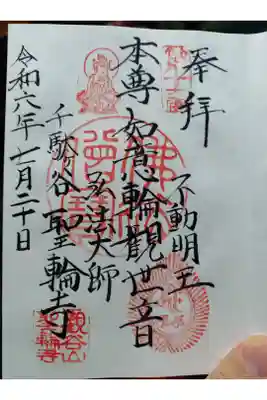 奉拝
不動明王
本尊如意輪観世音
弘法大師
千駄ヶ谷聖輪寺
令和六年七月二十日
観谷山
聖輪寺